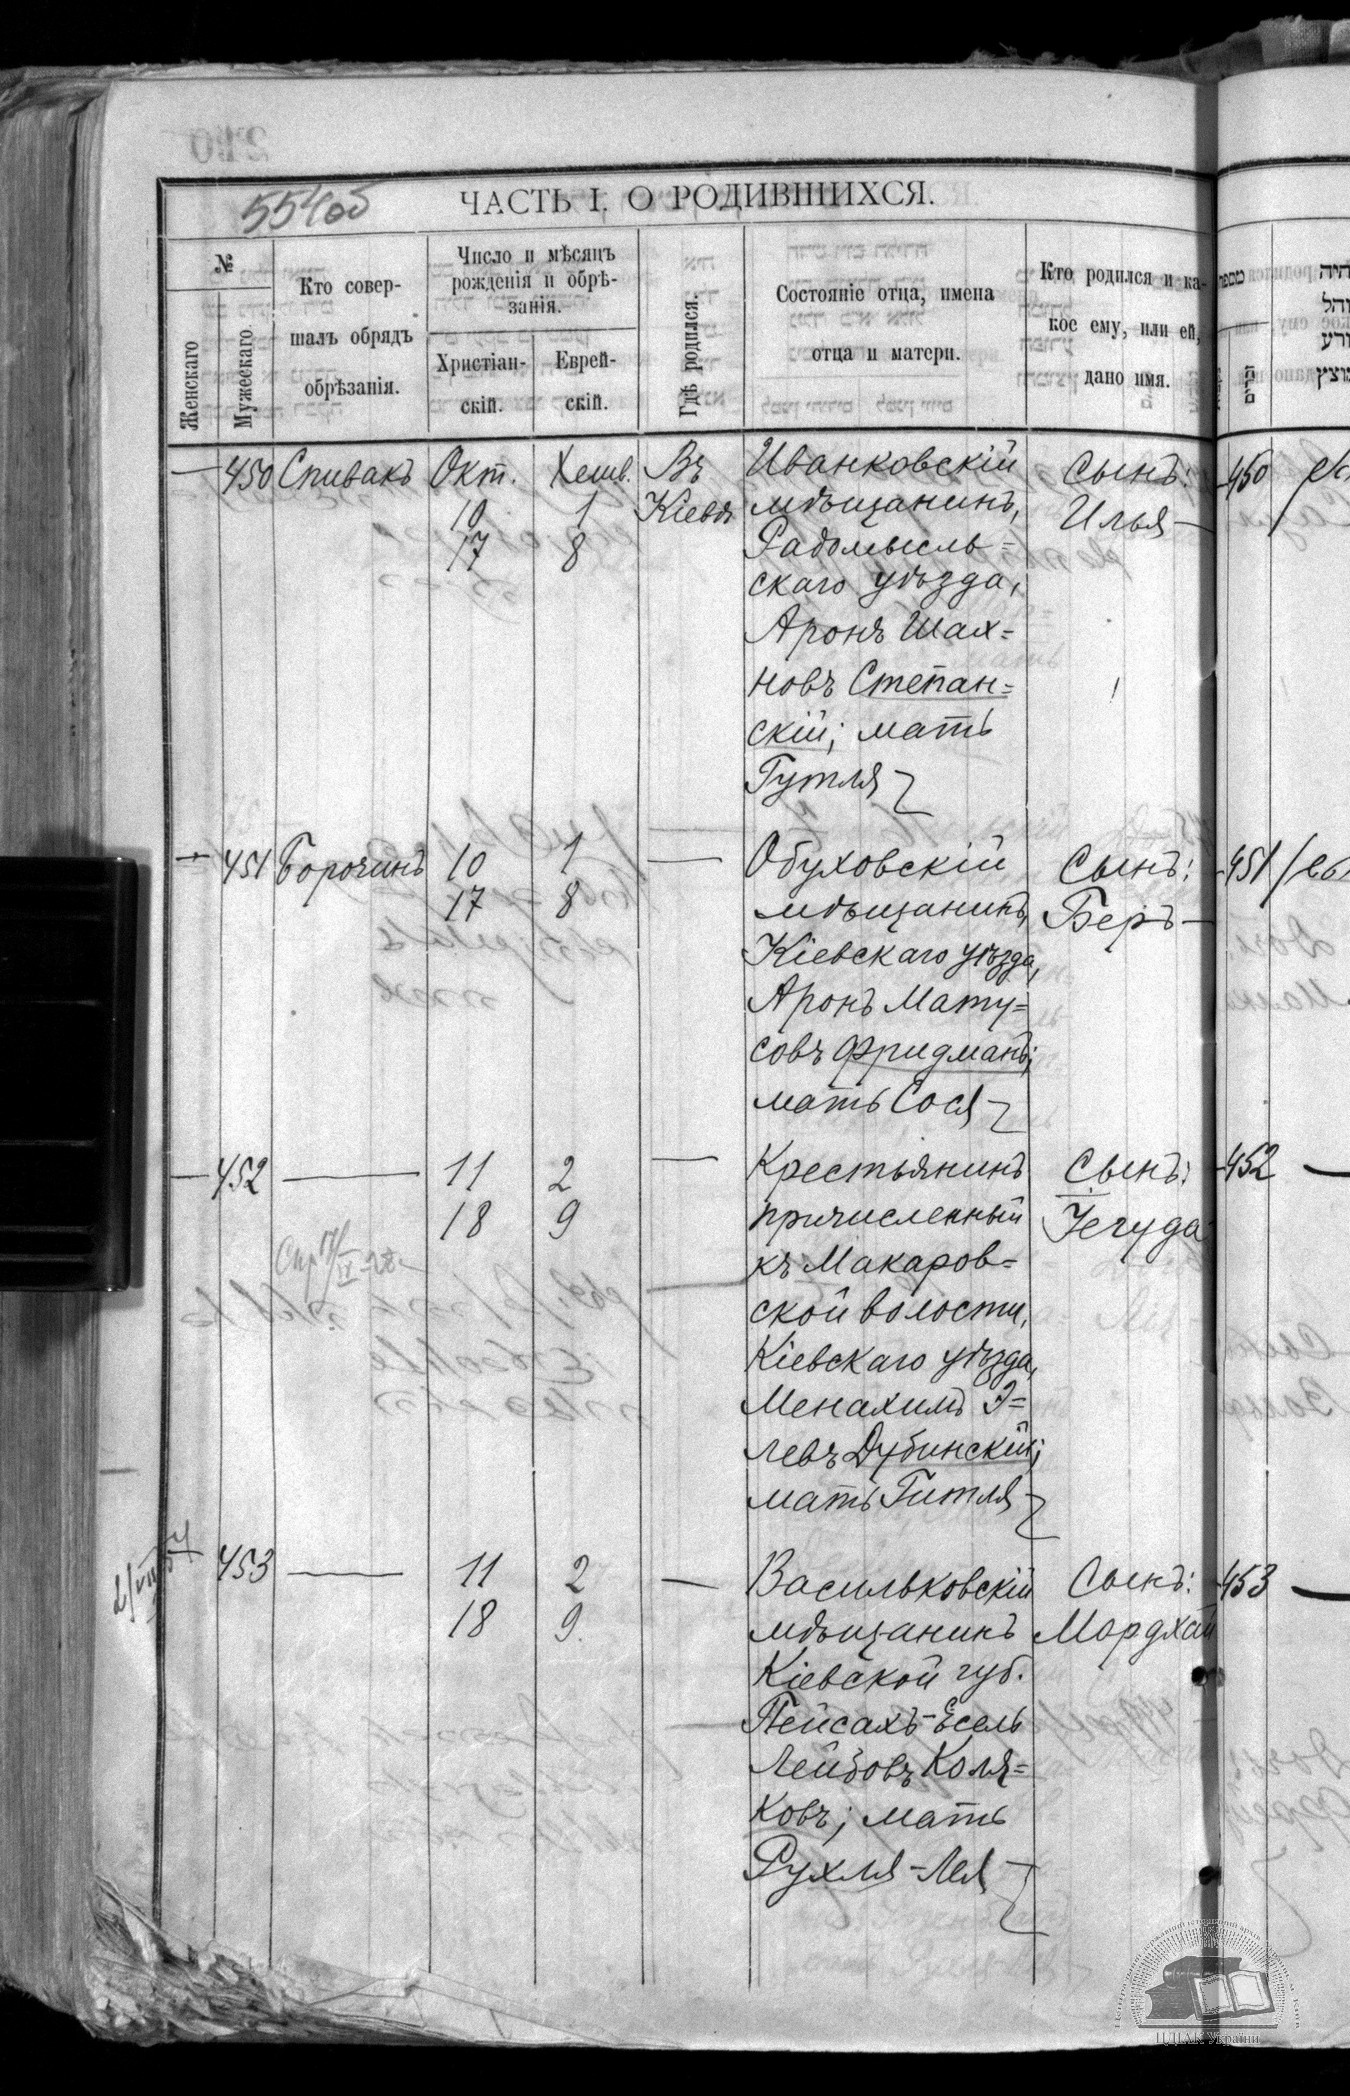 554об
ЧАСТЬ I. О РОДИВШИХСЯ.
№
Женскаго
Мужескаго.
Кто совер-
шалъ обрядъ
обрѣзанія.
Число и мѣсяцъ
рожденія и обрѣ-
занія.
Христіан-
скій.
Еврей-
скій.
Гдѣ родился.
Состояніе отца, имена
отца и матери.
Кто родился и ка-
кое ему, или ей,
дано имя.
— 450 Спивакъ Окт. Хешв. Въ Иванковскій Сынъ: 450
10 1 Кіевѣ мѣщанинъ, Илья —
17 8 Радомысль=
скаго уѣзда,
Аронъ Шах-
новъ Степан=
скій; мать
Гутля
— 451 Борочинъ 10 1 — Обуховскій Сынъ: 451
17 8 мѣщанинъ, Беръ —
Кіевскаго уѣзда,
Аронъ Мату=
совъ Фридманъ;
мать Сося
— 452 — 11 2 — Крестьянинъ Сынъ: 452 —
18 9 причисленный Іегуда
къ Макаров=
ской волости,
Кіевскаго уѣзда,
Менахимъ Э=
левъ Дубинскій;
мать Гитля
453 — 11 2 — Васильковскій Сынъ: 453 —
18 9. мѣщанинъ Мордхай
Кіевской губ.
Пейсахъ-Есель
Лейбовъ Коля=
ковъ; мать
Рухля-Лея
ЦДІАК України